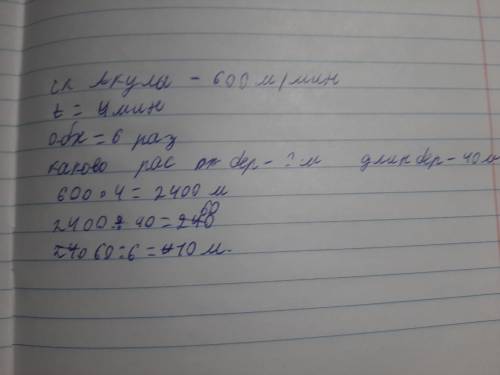 ск Акулы - 600 м/мин
t = 4 мин
обх = 6 раз
каково рас от бер - ? м длин бер - 40 м
600 • 4 = 2400 м
2400 : 40 = 60
60 : 6 = 10 м.